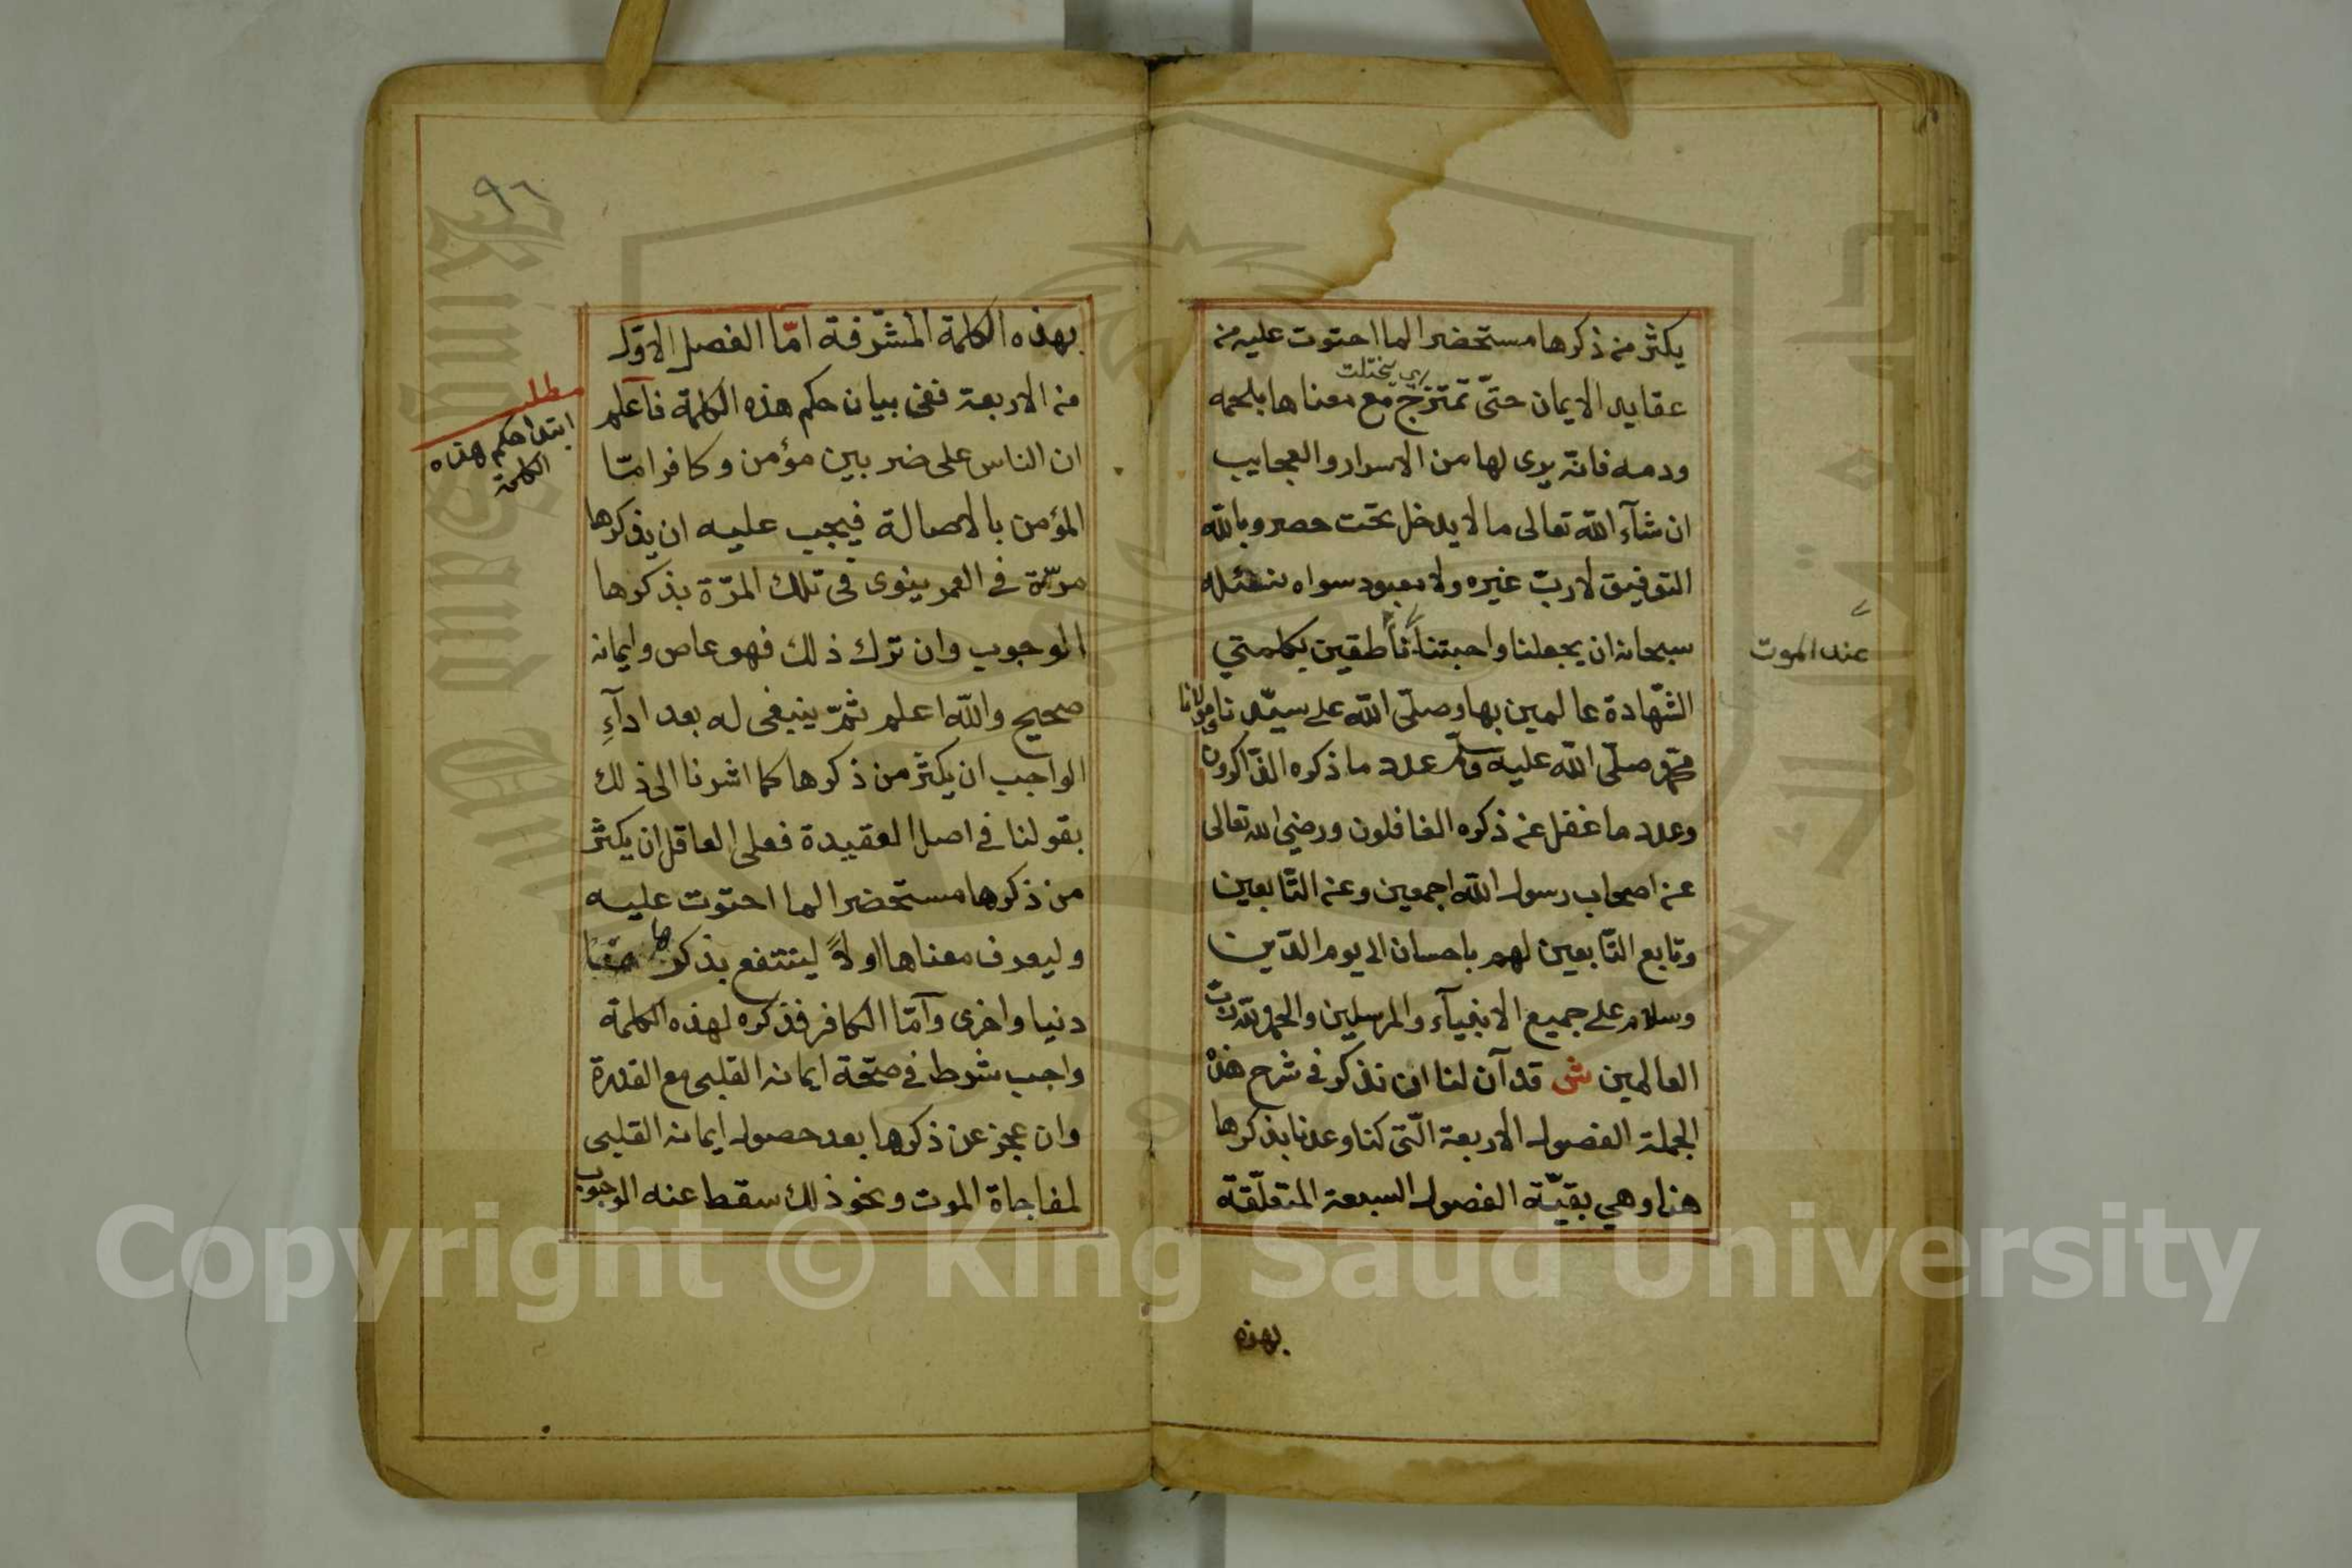 يكثر من ذكرها مستحضرا لما احتوت عليه من
عقايد الايمان حتّى تمتزج مع معناها بلحمه
ودمه فانّه يرى لها من الاسرار والعجايب
ان شآء اللّه تعالى ما لا يدخل تحت حصر وباللّه
التوفيق لا ربّ غيره ولا معبود سواه نسئله
سبحانه ان يجعلنا واحبتنا ناطقين بكلمتي
عند الموت
الشّهادة عالمين بها وصلّى اللّه على سيّدنا ومولانا
محمّد صلّى اللّه عليه وسلّم عدد ما ذكره الذّاكرون
وعدد ما غفل عن ذكره الغافلون ورضي الله تعالى
عن اصحاب رسول اللّه اجمعين وعن التّابعين
وتابع التّابعين لهم باحسان الى يوم الدّين
وسلام على جميع الانبيآء والمرسلين والحمد للّه ربّ
العالمين ش قد آن لنا ان نذكر في شرح هذه
الجملة الفصول الاربعة الّتى كنا وعدنا بذكرها
هنا وهي بقيّة الفصول السبعة المتعلّقة
بهذه
٩٦
بهذه الكلمة المشرّفة امّا الفصل الاوّل
من الاربعة ففى بيان حكم هذه الكلمة فآعلم
مطلب
ابتدا حكم هذه
الكلمة
ان الناس على ضربين مؤمن وكافر امّا
المؤمن بالاصالة فيجب عليه ان يذكرها
مرّة في العمر ينوى فى تلك المرّة بذكرها
الوجوب وان ترك ذلك فهو عاص وايمانه
صحيح واللّه اعلم ثمّ ينبغى له بعد ادآءِ
الواجب ان يكثر من ذكرها كما اشرنا الى ذلك
بقولنا في اصل العقيدة فعلى العاقل ان يكثر
من ذكرها مستحضرا لما احتوت عليه
وليعرف معناها اولاً لينتفع بذكرها
دنيا واخرى وآمّا الكافر فذكره لهذه الكلمة
واجب شرط في صحّة ايمانه القلبى مع القدرة
وان عجز عن ذكرها بعد حصول ايمانه القلبى
لمفاجاة الموت ونحو ذلك سقط عنه الوجوب
Copyright © King Saud University